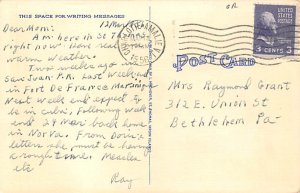 THIS SPACE FOR WRITING MESSAGES
12 Mar
Dear Mom:
Am here in St
right now. Have real
warm weather.
Two weeks ago in
San Juan P.R. Last weekend
in Fort De France Martinique
Next week end expect to
be in Cuba. Following week
end 29 Mar back home
in Norva. From Doris
letters she must be having
a rough time. Measles
etc
Ray
CHARLOTTE AMALIE
1950
POST CARD
3 CENTS 3
Mrs Raymond Grant
312 E. Union St
Bethlehem Pa